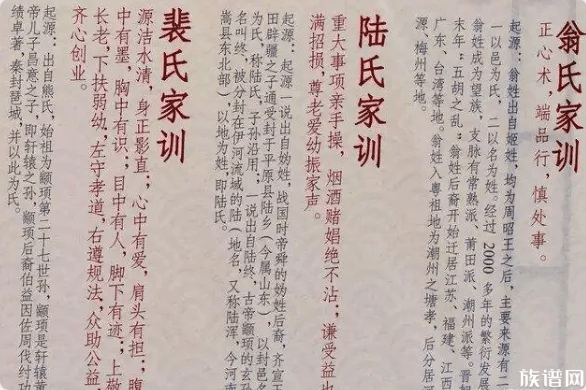 翁氏家训
正心术,端品行,慎处事。
起源:翁姓出自姬姓,均为周昭王之后,主要来源有二
一以邑为氏,二以名为姓。经过2000多年的繁衍发
翁姓成为望族,支脉有常熟派、莆田派、潮州派等。晋
末年,“五胡之乱”翁姓后裔开始迁居江苏、福建、江西
广东、台湾等地。翁姓入粤祖地为潮州之塘孝,后分居河
源、梅州等地。
陆氏家训
重大事项亲手操,烟酒赌娼绝不沾;谦受益也
满招损,尊老爱幼振家声。
起源:起源一说出自妫姓,战国时帝舜的妫姓后裔,齐宣王
田辟疆之子通受封于平原县陆乡(今属山东),以封邑名
为氏,称陆氏,子孙沿用;一说出自陆终,古帝颛顼的玄孙
名叫终,被分封在伊河流域的陆(地名,又称陆浑,今河南
嵩县东北部)以地为姓,即陆氏。
裴氏家训
源洁水清,身正影直;心中有爱,肩头有担;腹
中有墨,胸中有识;目中有人,脚下有迹;上敬
长老,下扶弱幼,左守孝道,右遵规法,众助公益
齐心创业。
起源:出自熊氏,始祖为颛顼第二十七世孙,颛顼是轩辕黄
帝儿子昌意之子,即轩辕之孙,颛顼后裔伯益因佐周伐纣功
绩卓著,秦封邑城,并以此为氏。
族谱网